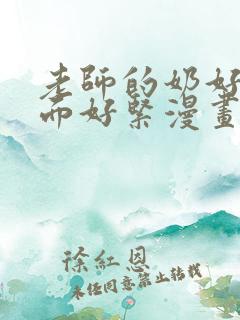 老師的奶好
而好緊漫畫
徐紅恩
未经同意禁止转载